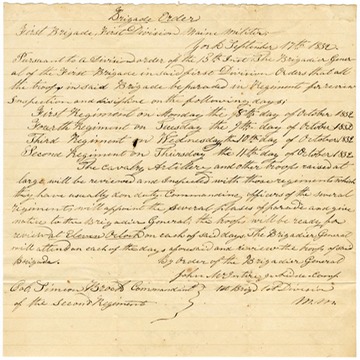 Brigade Order
First Brigade, First Division Maine Militia
York September 17th 1832
Pursuant to a Division order of the 15th Inst The Brigadier Gener
al of the First Brigade in said first Division Orders that all
the troops in said Brigade be paraded in Regiment for review
Inspection and discipline on the following days;
First Regiment on Monday the 8th day of October 1832
Fourth Regiment on Tuesday the 9th day of October 1832
Third Regiment on Wednesday the 10th day of October 1832
Second Regiment on Thursday the 11th day of October 1832
The Cavalry Artillery and other troops raised at
large will be reviewed and Inspected with those regiments which
they have usually done duty Commanding officers of the several
regiments will appoint the several places of parade and give
notice to the Brigadier General, the troops will be ready for
review at Eleven Oclock on each of said days The Brigadier General
will attend on each of the days aforesaid and review the troops of said
brigade.
By order of the Brigadier General
John McIntire aide-de-camp
Col. Simeon Commandant
of the Second Regiment
1st Brig 1st Division